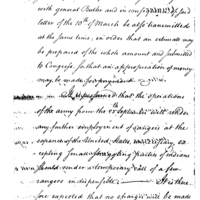 with general Butler and in
letter of the 10th of March be also transmitted
at the same time, in order that an estimate may
be prepared of the whole amount and submitted
to Congress so that an appropriation of money
may be made for payment
It is presumed that the operations
of the army from the of September will render
any further employment of at the
expense of the United States, unnecessary, ex-
cepting small parties of indians
should render a temporary call of a few
rangers indispensible It is there
fore expected that no charges will be made